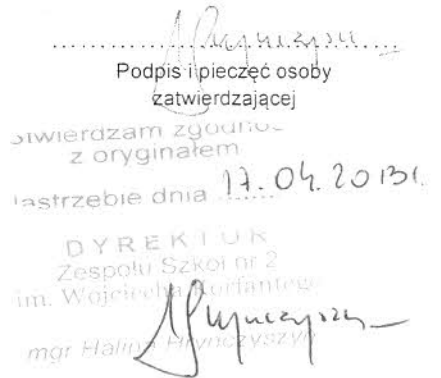 Podpis i pieczęć osoby
zatwierdzającej
z oryginałem
Jastrzębie dnia 17.04.2013r.
DYREKTOR
Zespołu Szkół nr 2
im. Wojciecha Korfantego
mgr Halina Hrynczyszyn